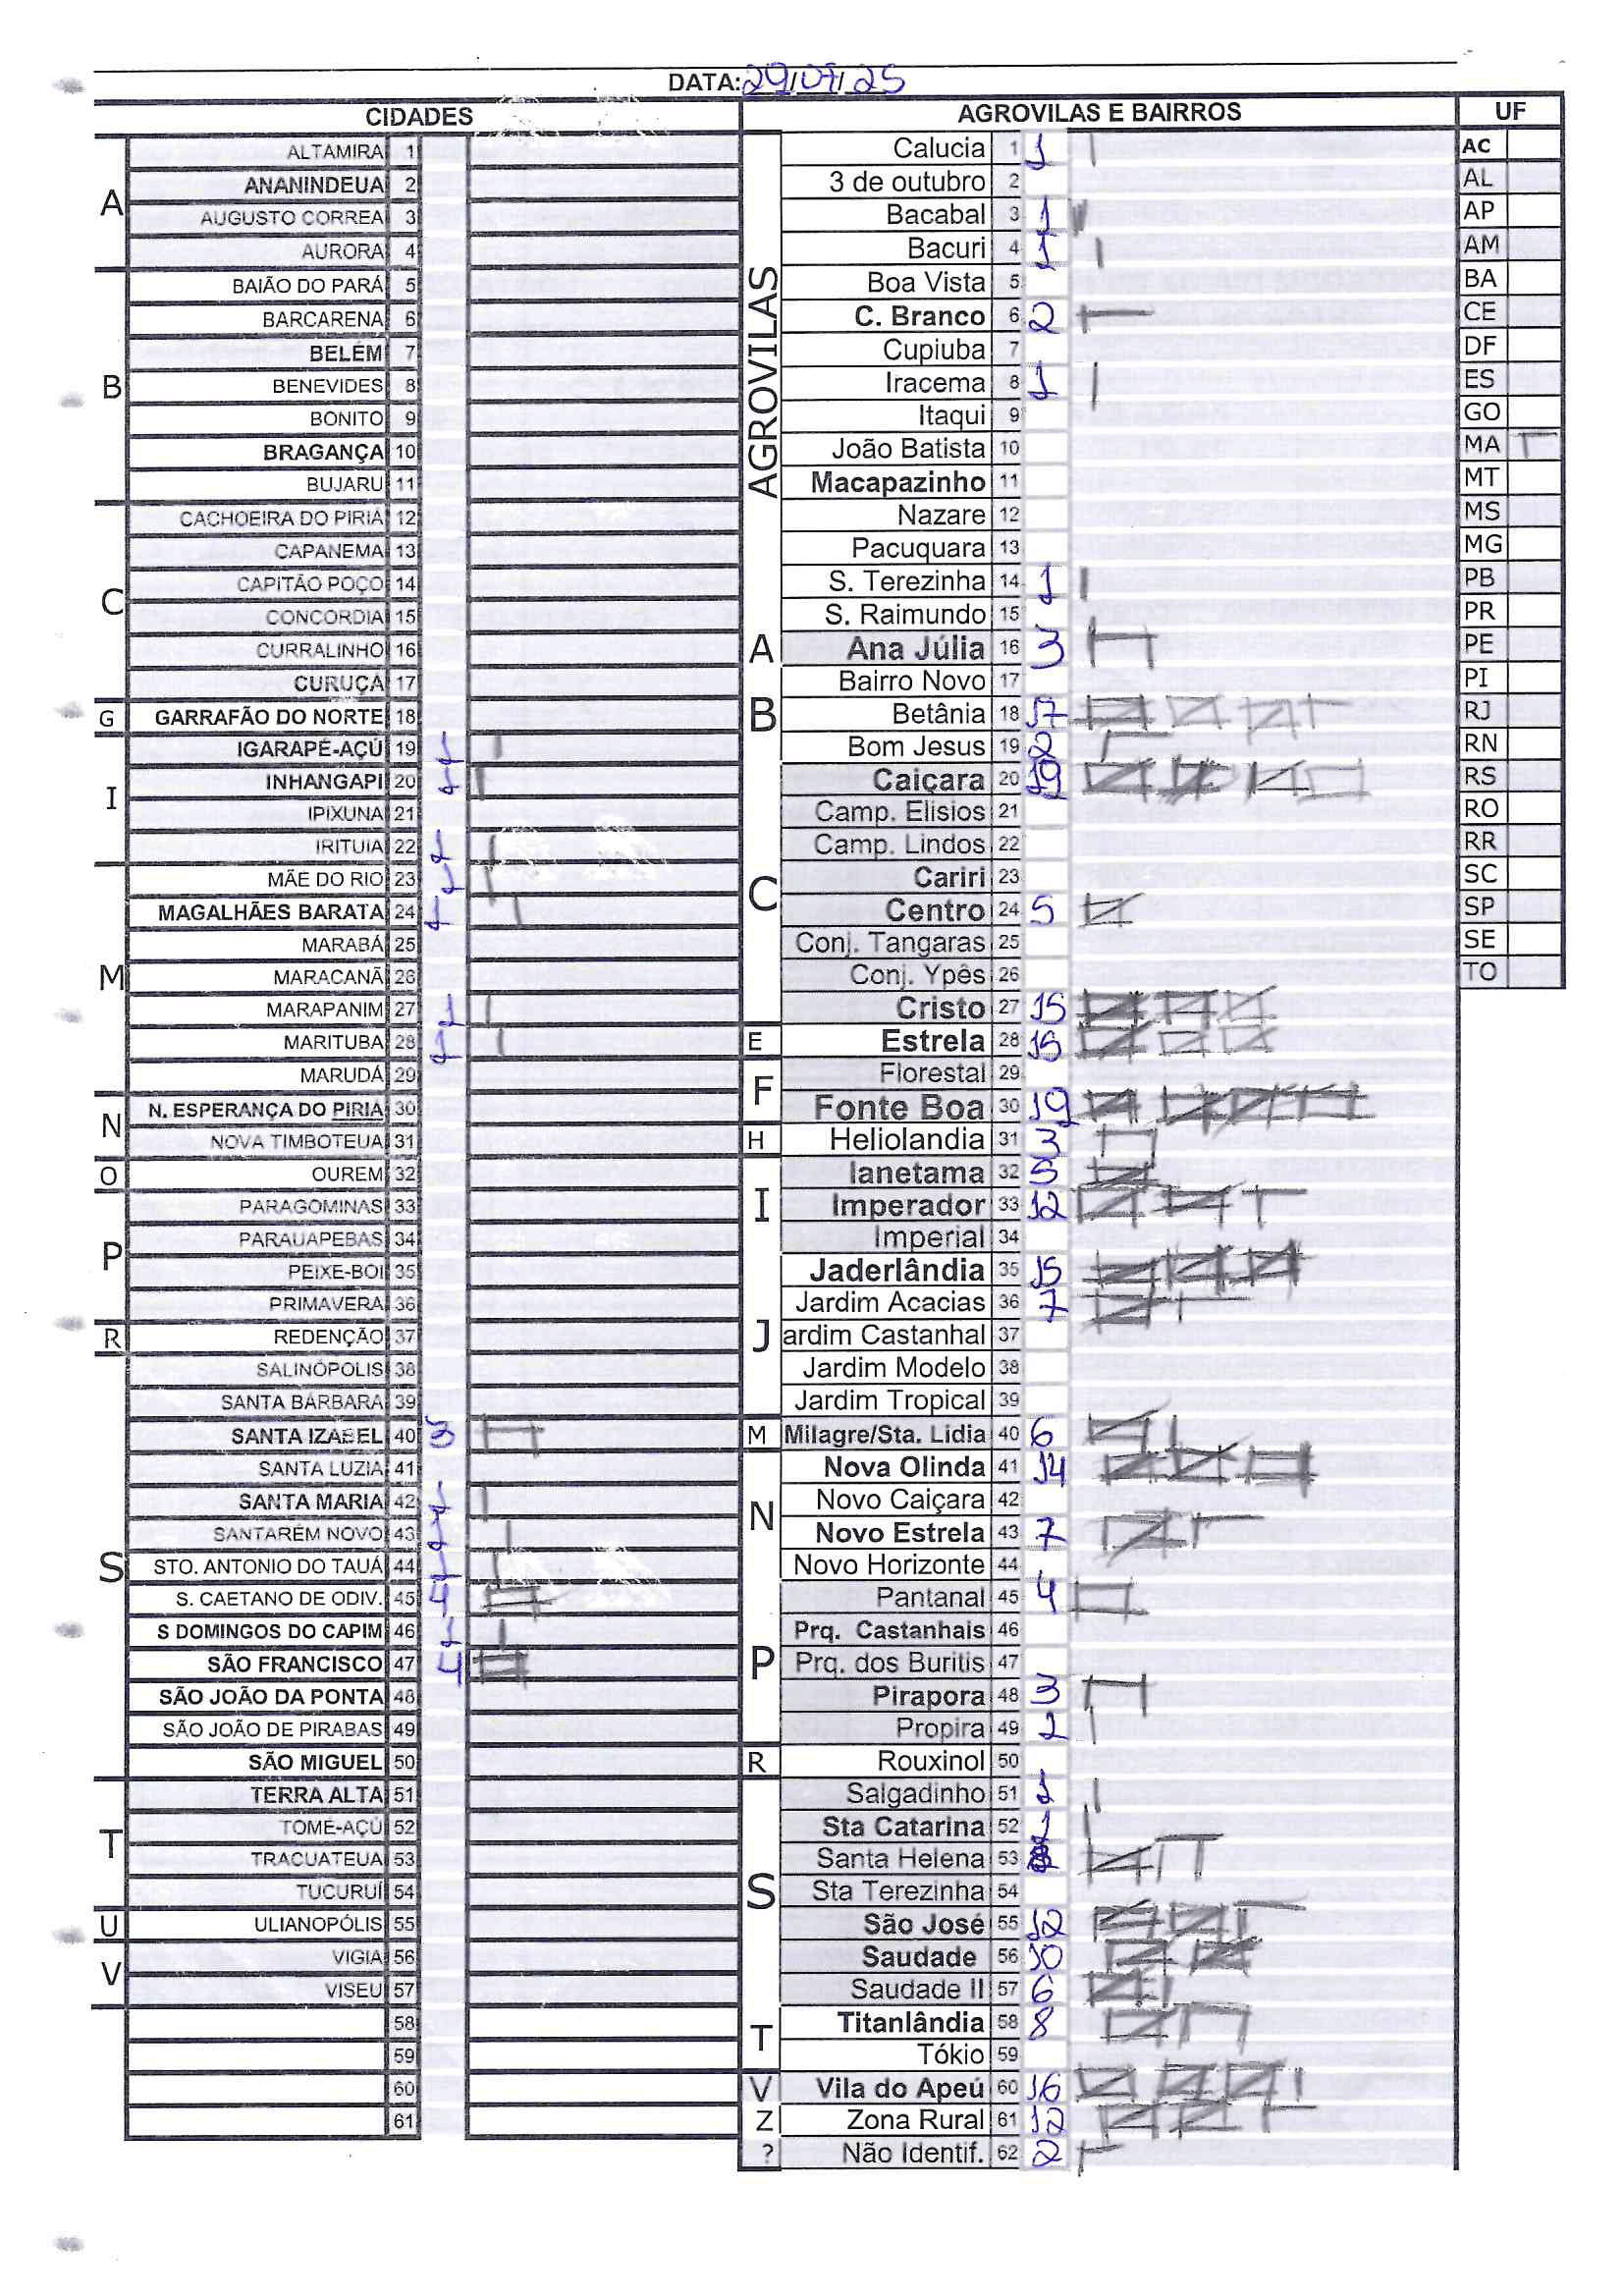 DATA: 29/07/25
CIDADES
A
ALTAMIRA 1
ANANINDEUA 2
AUGUSTO CORREA 3
AURORA 4
B
BAIÃO DO PARÁ 5
BARCARENA 6
BELÉM 7
BENEVIDES 8
BONITO 9
BRAGANÇA 10
BUJARU 11
C
CACHOEIRA DO PIRIÁ 12
CAPANEMA 13
CAPITÃO POÇO 14
CONCORDIA 15
CURRALINHO 16
CURUÇÁ 17
G
GARRAFÃO DO NORTE 18
I
IGARAPÉ-AÇÚ 19 1
INHANGAPI 20 1
IPIXUNA 21
IRITUIA 22 1
M
MÃE DO RIO 23 1
MAGALHÃES BARATA 24 1
MARABÁ 25
MARACANÃ 26
MARAPANIM 27 1
MARITUBA 28 1
MARUDÁ 29
N
N. ESPERANÇA DO PIRIA 30
NOVA TIMBOTEUA 31
O
OUREM 32
P
PARAGOMINAS 33
PARAUAPEBAS 34
PEIXE-BOI 35
PRIMAVERA 36
R
REDENÇÃO 37
S
SALINÓPOLIS 38
SANTA BARBARA 39
SANTA IZABEL 40 3
SANTA LUZIA 41
SANTA MARIA 42 1
SANTARÉM NOVO 43 1
STO. ANTONIO DO TAUÁ 44 1
S. CAETANO DE ODIV. 45 4
S DOMINGOS DO CAPIM 46 1
SÃO FRANCISCO 47 4
SÃO JOÃO DA PONTA 48
SÃO JOÃO DE PIRABAS 49
SÃO MIGUEL 50
T
TERRA ALTA 51
TOMÉ-AÇÚ 52
TRACUATEUA 53
TUCURUÍ 54
U
ULIANOPÓLIS 55
V
VIGIA 56
VISEU 57
58
59
60
61
AGROVILAS E BAIRROS
AGROVILAS
Calucia 1 1
3 de outubro 2
Bacabal 3 1
Bacuri 4 1
Boa Vista 5
C. Branco 6 2
Cupiuba 7
Iracema 8 1
Itaqui 9
João Batista 10
Macapazinho 11
Nazare 12
Pacuquara 13
S. Terezinha 14 1
S. Raimundo 15
A
Ana Júlia 16 3
Bairro Novo 17
B
Betânia 18 17
Bom Jesus 19 2
Caiçara 20 19
Camp. Elisios 21
Camp. Lindos 22
C
Cariri 23
Centro 24 5
Conj. Tangaras 25
Conj. Ypês 26
Cristo 27 15
E
Estrela 28 15
F
Florestal 29
Fonte Boa 30 19
H
Heliolandia 31 3
I
Ianetama 32 5
Imperador 33 12
Imperial 34
J
Jaderlândia 35 15
Jardim Acacias 36 7
ardim Castanhal 37
Jardim Modelo 38
Jardim Tropical 39
M
Milagre/Sta. Lidia 40 6
N
Nova Olinda 41 14
Novo Caiçara 42
Novo Estrela 43 7
Novo Horizonte 44
P
Pantanal 45 4
Prq. Castanhais 46
Prq. dos Buritis 47
Pirapora 48 3
Propira 49 1
R
Rouxinol 50
S
Salgadinho 51 1
Sta Catarina 52 1
Santa Helena 53 8
Sta Terezinha 54
São José 55 12
Saudade 56 10
Saudade II 57 6
T
Titanlândia 58 8
Tókio 59
V
Vila do Apeú 60 16
Z
Zona Rural 61 12
?
Não Identif. 62 2
UF
AC
AL
AP
AM
BA
CE
DF
ES
GO
MA
MT
MS
MG
PB
PR
PE
PI
RJ
RN
RS
RO
RR
SC
SP
SE
TO